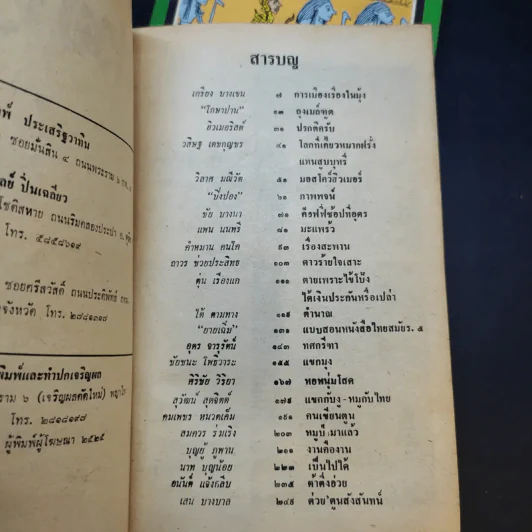 พ์ ประเสริฐวาทิน
ซอยมั่นสิน ๔ ถนนพระราม ๖
ปิ่นเฉลียว
โชติสหาย ถนนริมคลองประปา
โทร. ๕๘๕๘๖๑๙
ซอยศรีสวัสดิ์ ถนนประดิพัทธ์
จังหวัด โทร. ๒๘๔๑๓๑๘
พิมพ์และทำปกเจริญผล
ราม ๖ (เจริญผลตัดใหม่) พญาไท
โทร. ๒๘๑๘๑๙๘
ผู้พิมพ์ผู้โฆษณา ๒๕๒๕
สารบญ
เกรียง บางเขน ๗ การเมืองเรื่องในมุ้ง
"โกษาปาน" ๑๓ ถุงเมล์ฑูต
ฮิวเมอริสต์ ๓๑ ปรกติครับ
วสิษฐ เดชกุญชร ๔๑ โลกที่เดียวหมากฝรั่ง
แทนสูบบุหรี่
วิลาศ มณีวัต ๕๑ มอสโคว์ฮิวเมอร์
"ปิ๋งปอง" ๖๑ ภาพพจน์
ชัย บางนา ๗๑ คิงฟฟี่ช้อปที่อุดร
แพน นนทรี ๘๑ มะแพร้ว
คำหมาน คนไค ๙๓ เรื่องสะพาน
ถาวร ช่วยประสิทธิ์ ๑๐๓ ดาวร้ายใจเสาะ
ตุ่น เรืองแก ๑๑๑ ตายเพราะไข้โป้ง
ได้เงินประกันหรือเปล่า
ใต้ ตามทาง ๑๒๑ ตำนาณ
"ยายเฉิ่ม" ๑๓๑ แบบสอนหนังสือไทยสมัยร. ๕
อุดร จารุรัตน์ ๑๔๓ ทศกรีฑา
ชัยชนะ โพธิวาระ ๑๕๕ แขกมุง
ศิริชัย วิริยา ๑๖๗ หอพนุ่มโสด
สุวัฒน์ สุดจิตต์ ๑๗๙ แขกกับงู - หมูกับไทย
คมเพชร หมวดเค็ม ๑๙๑ คนเขียนตูน
สมควร ร่มเริง ๒๐๓ หมูป่ามาแล้ว
บุญยู ภูพาน ๒๑๑ งานคืองาน
นาท บุญน้อย ๒๒๓ เป็นไปได้
อนันต์ แจ้งกลีบ ๒๓๕ ต้าตึ่งฮ่วย
เสน บางบาล ๒๔๙ ด่วย'ตูนสังสันทน์